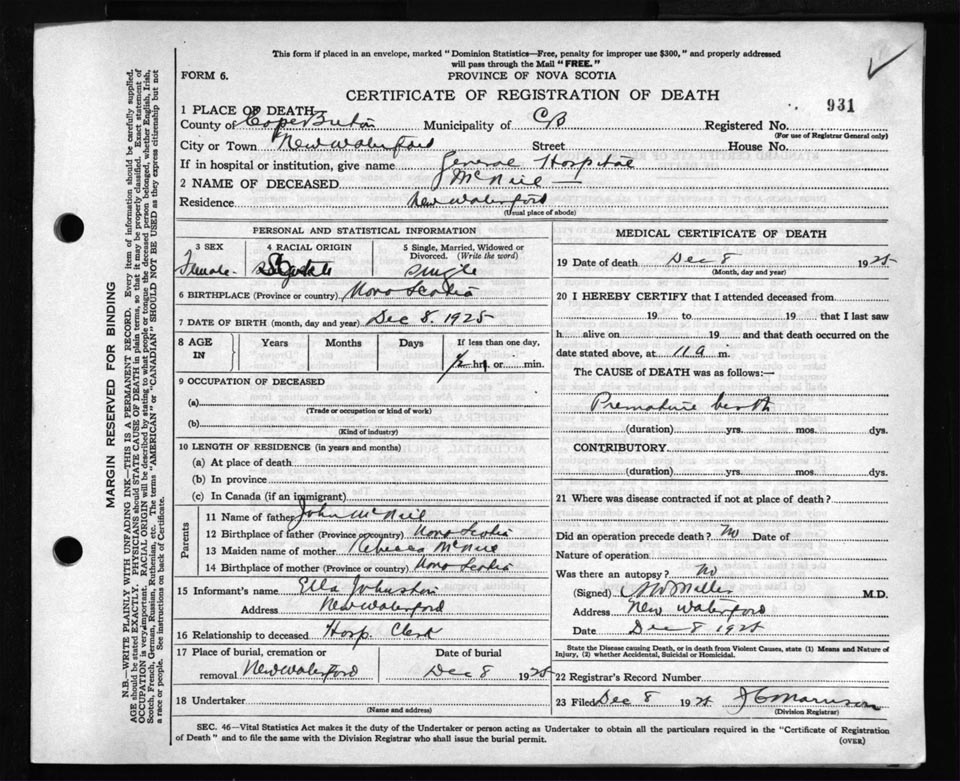 This form if placed in an envelope, marked "Dominion Statistics—Free, penalty for improper use $300," and properly addressed
will pass through the Mail "FREE."
FORM 6. PROVINCE OF NOVA SCOTIA
CERTIFICATE OF REGISTRATION OF DEATH
931
1 PLACE OF DEATH—
County of Cape Breton Municipality of CB Registered No.
(For use of Registrar General only)
City or Town New Waterford Street House No.
If in hospital or institution, give name General Hospital
2 NAME OF DECEASED McNeil —
Residence New Waterford
(Usual place of abode)
PERSONAL AND STATISTICAL INFORMATION
3 SEX 4 RACIAL ORIGIN 5 Single, Married, Widowed or Divorced. (Write the word)
Female single
6 BIRTHPLACE (Province or country) Nova Scotia
7 DATE OF BIRTH (month, day and year) Dec 8. 1928
8 AGE IN Years Months Days If less than one day,
1/2 hr. or min.
9 OCCUPATION OF DECEASED
(a)
(Trade or occupation or kind of work)
(b)
(Kind of industry)
10 LENGTH OF RESIDENCE (in years and months)
(a) At place of death
(b) In province
(c) In Canada (if an immigrant)
Parents
11 Name of father John McNeil
12 Birthplace of father (Province or country) Nova Scotia
13 Maiden name of mother Rebecca McNeil
14 Birthplace of mother (Province or country) Nova Scotia
15 Informant's name Ella Johnston
Address New Waterford
16 Relationship to deceased Hosp. Clerk
17 Place of burial, cremation or removal New Waterford Date of burial Dec 8 1928
18 Undertaker
(Name and address)
MEDICAL CERTIFICATE OF DEATH
19 Date of death Dec 8 1928
(Month, day and year)
20 I HEREBY CERTIFY that I attended deceased from
19 to 19 that I last saw
h alive on 19 and that death occurred on the
date stated above, at 11 a m.
The CAUSE of DEATH was as follows:—
Premature birth
(duration) yrs. mos. dys.
CONTRIBUTORY
(duration) yrs. mos. dys.
21 Where was disease contracted if not at place of death?
Did an operation precede death? No Date of
Nature of operation
Was there an autopsy? No
(Signed) Miller M.D.
Address New Waterford
Date Dec 8 1928
State the Disease causing Death, or in death from Violent Causes, state (1) Means and Nature of
Injury, (2) whether Accidental, Suicidal or Homicidal.
22 Registrar's Record Number
23 Filed Dec 8 1928
(Division Registrar)
SEC. 46—Vital Statistics Act makes it the duty of the Undertaker or person acting as Undertaker to obtain all the particulars required in the "Certificate of Registration
of Death" and to file the same with the Division Registrar who shall issue the burial permit. (OVER)
MARGIN RESERVED FOR BINDING
N.B.—WRITE PLAINLY WITH UNFADING INK—THIS IS A PERMANENT RECORD. Every item of information should be carefully supplied.
AGE should be stated EXACTLY. PHYSICIANS should STATE CAUSE OF DEATH in plain terms, so that it may be properly classified. Exact statement of
OCCUPATION is very important. RACIAL ORIGIN will be described by stating to what people or tongue the deceased person belonged, whether English, Irish,
Scotch, French, German, Russian, Ruthenian, etc. The terms "AMERICAN" or "CANADIAN" SHOULD NOT BE USED as they express citizenship but not
a race or people. See instructions on back of Certificate.